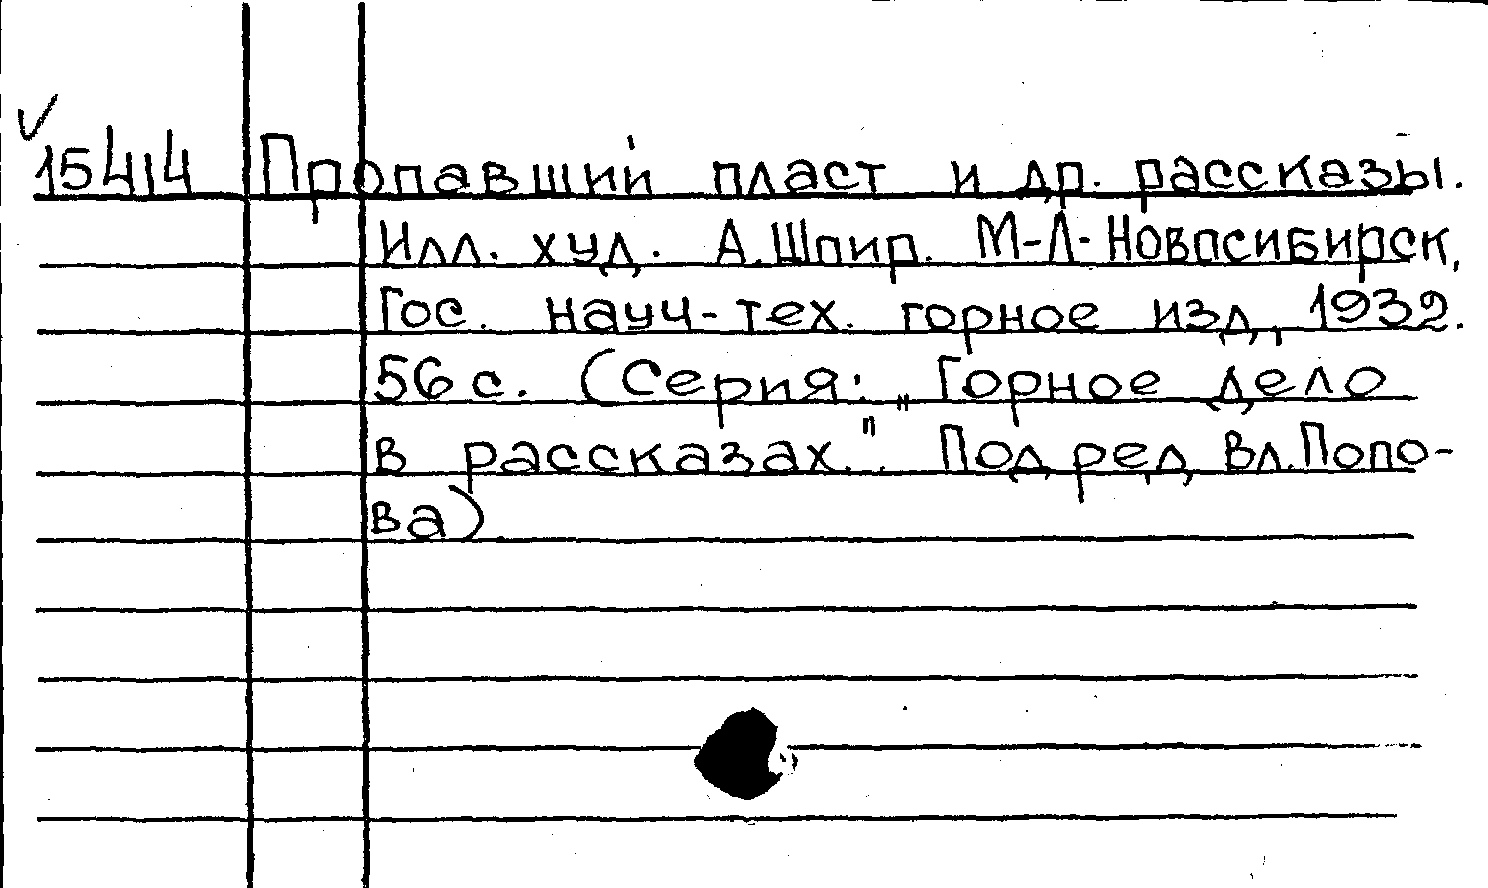 15414 Пропавший пласт и др. рассказы.
Илл. худ. А. Шпир. М-Л-Новосибирск,
Гос. науч-тех. горное изд, 1932.
56 с. (Серия: „Горное дело
в рассказах." Под ред Вл. Попо-
ва)